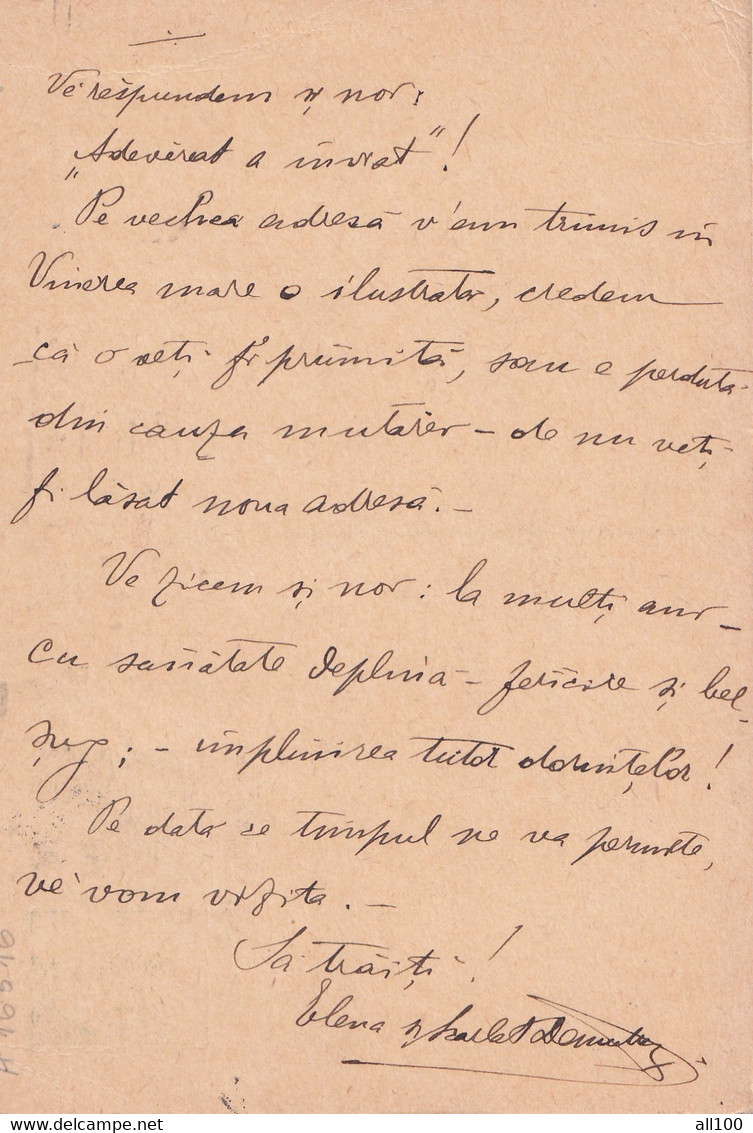 Vĕ rĕspundem și noi:
„Adevĕrat a înviat"!
Pe vechea adresă v'am trimis în
Vinerea mare o ilustrată, credem
că o veți fi primită, sau e perdută
din cauza mutărei – de nu veți
fi lăsat noua adresă. –
Ve zicem și noi: la mulți ani –
cu sănătate deplină – fericire și bel-
șug; – împlinirea tutor dorințelor!
Pe dată ce timpul ne va permite,
vĕ vom vizita. –
Să trăiți!
Elena și Scarlat
H 19516
www.delcampe.net
all100